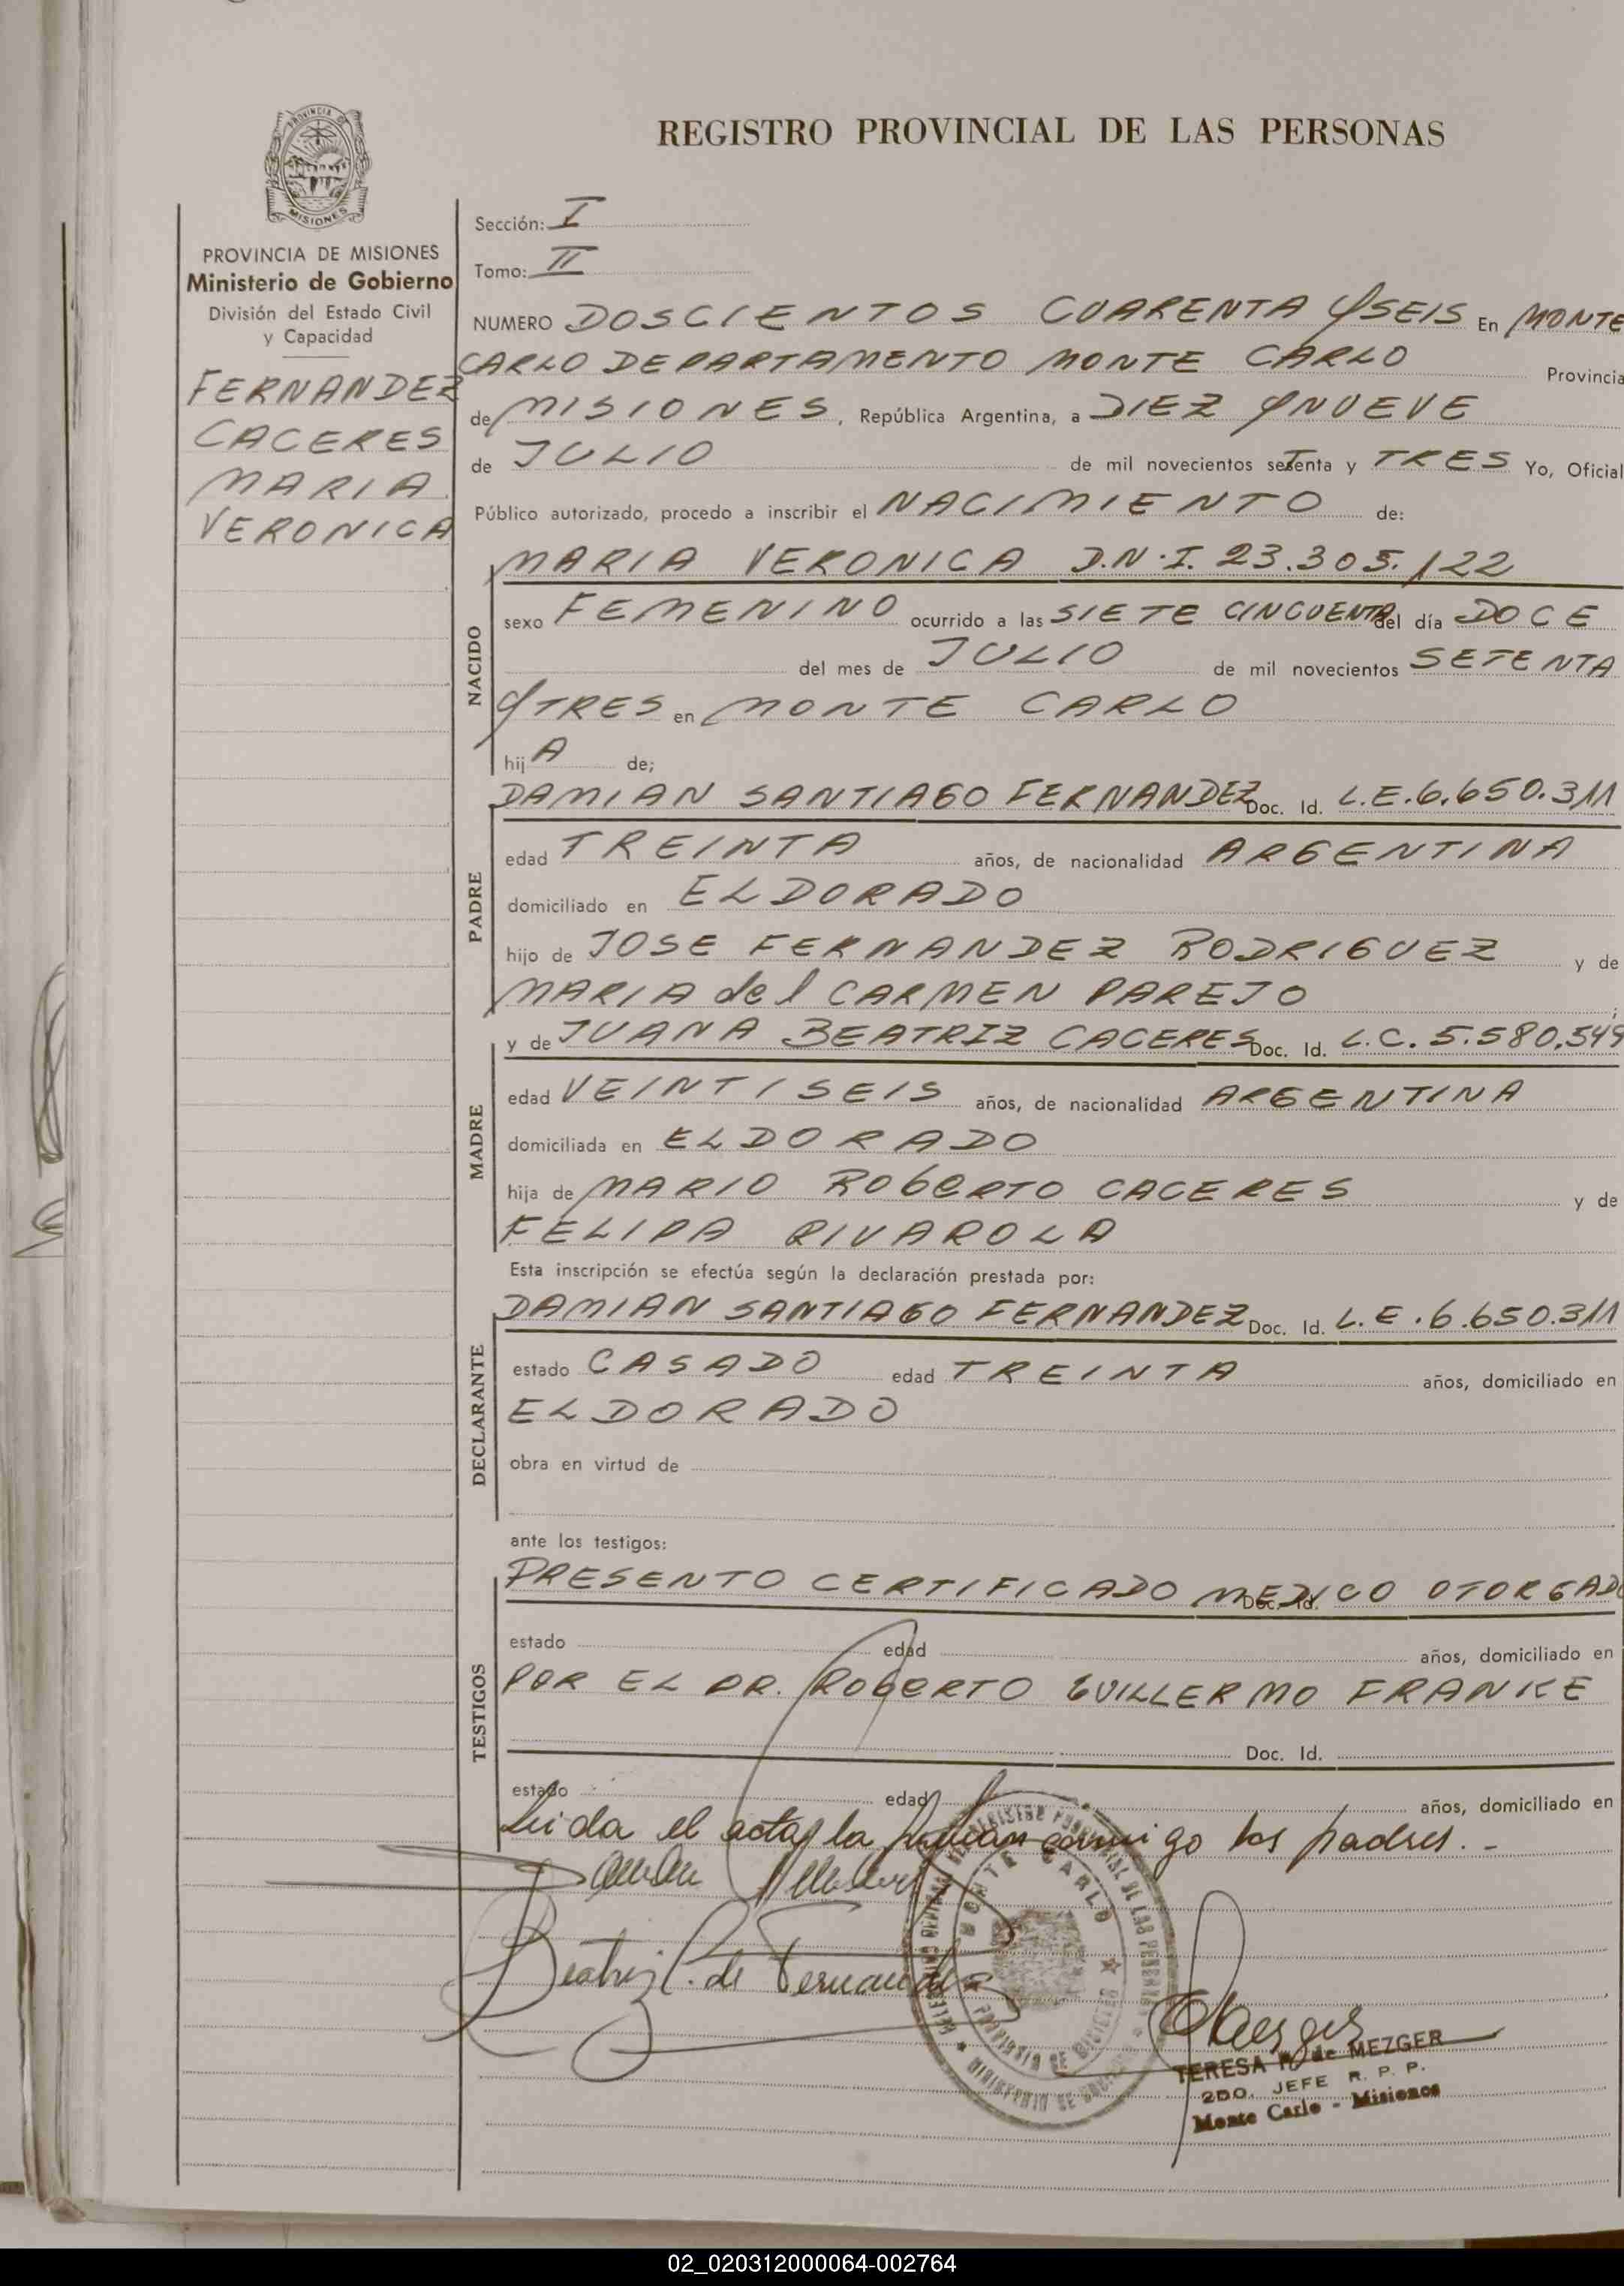 REGISTRO PROVINCIAL DE LAS PERSONAS
PROVINCIA DE MISIONES
Ministerio de Gobierno
División del Estado Civil
y Capacidad
FERNANDEZ
CACERES
MARIA
VERONICA
Sección: I
Tomo: II
NUMERO DOSCIENTOS CUARENTA Y SEIS En MONTE
CARLO DEPARTAMENTO MONTE CARLO Provincia
de MISIONES, República Argentina, a DIEZ Y NUEVE
de JULIO de mil novecientos setenta y TRES Yo, Oficial
Público autorizado, procedo a inscribir el NACIMIENTO de:
NACIDO
MARIA VERONICA D.N.I. 23.305.122
sexo FEMENINO ocurrido a las SIETE CINCUENTA del día DOCE
del mes de JULIO de mil novecientos SETENTA
Y TRES en MONTE CARLO
hij A de;
PADRE
DAMIAN SANTIAGO FERNANDEZ Doc. Id. L.E. 6.650.311
edad TREINTA años, de nacionalidad ARGENTINA
domiciliado en ELDORADO
hijo de JOSE FERNANDEZ RODRIGUEZ y de
MARIA del CARMEN PAREJO;
MADRE
y de JUANA BEATRIZ CACERES Doc. Id. L.C. 5.580.549
edad VEINTISEIS años, de nacionalidad ARGENTINA
domiciliada en ELDORADO
hija de MARIO ROBERTO CACERES y de
FELIPA RIVAROLA
Esta inscripción se efectúa según la declaración prestada por:
DECLARANTE
DAMIAN SANTIAGO FERNANDEZ Doc. Id. L.E. 6.650.311
estado CASADO edad TREINTA años, domiciliado en
ELDORADO
obra en virtud de
ante los testigos:
TESTIGOS
PRESENTO CERTIFICADO MEDICO OTORGADO Doc. Id.
estado edad años, domiciliado en
POR EL DR. ROBERTO GUILLERMO FRANKE
Doc. Id.
estado edad años, domiciliado en
Leida el acta, la firman conmigo los padres.-
Beatriz C. de Fernandez
MONTE CARLO
PROVINCIA DE MISIONES
TERESA de MEZGER
2DO. JEFE R. P. P.
Monte Carlo - Misiones
02_020312000064-002764